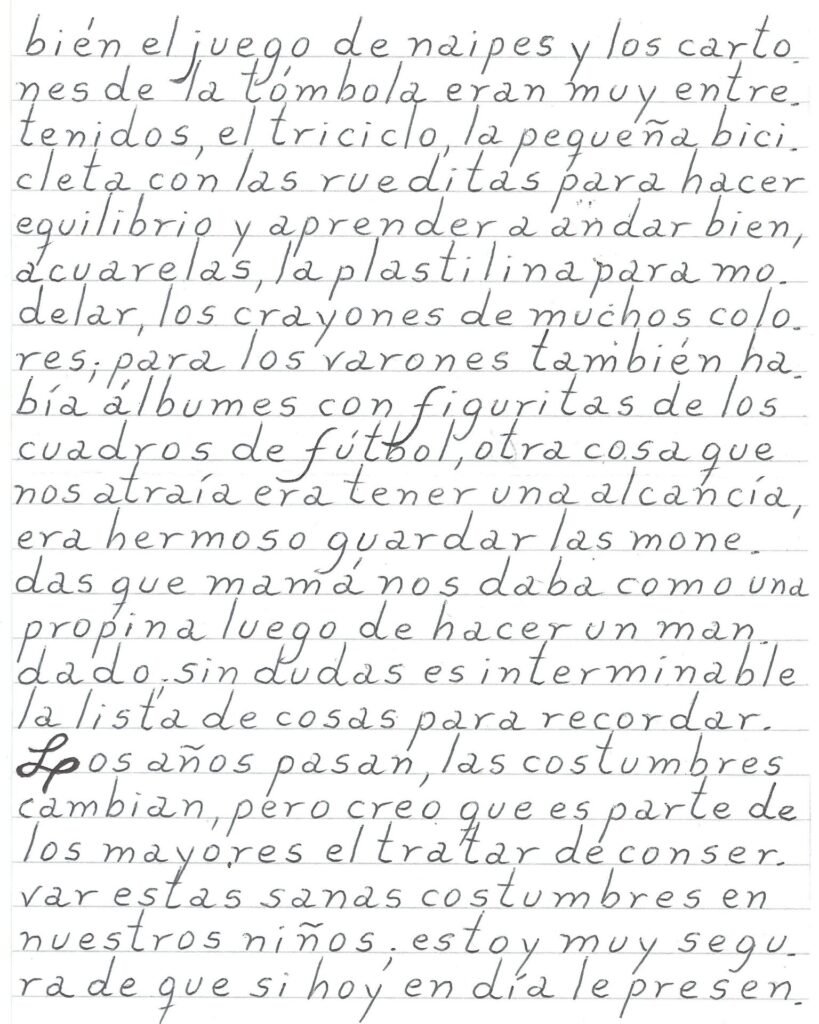 bién el juego de naipes y los carto-
nes de la tómbola eran muy entre-
tenidos, el triciclo, la pequeña bici-
cleta con las rueditas para hacer
equilibrio y aprender a andar bien,
acuarelas, la plastilina para mo-
delar, los crayones de muchos colo-
res; para los varones también ha-
bía álbumes con figuritas de los
cuadros de fútbol, otra cosa que
nos atraía era tener una alcancía,
era hermoso guardar las mone-
das que mamá nos daba como una
propina luego de hacer un man-
dado; sin dudas es interminable
la lista de cosas para recordar.
Los años pasan, las costumbres
cambian, pero creo que es parte de
los mayores el tratar de conser-
var estas sanas costumbres en
nuestros niños; estoy muy segu-
ra de que si hoy en día le presen-